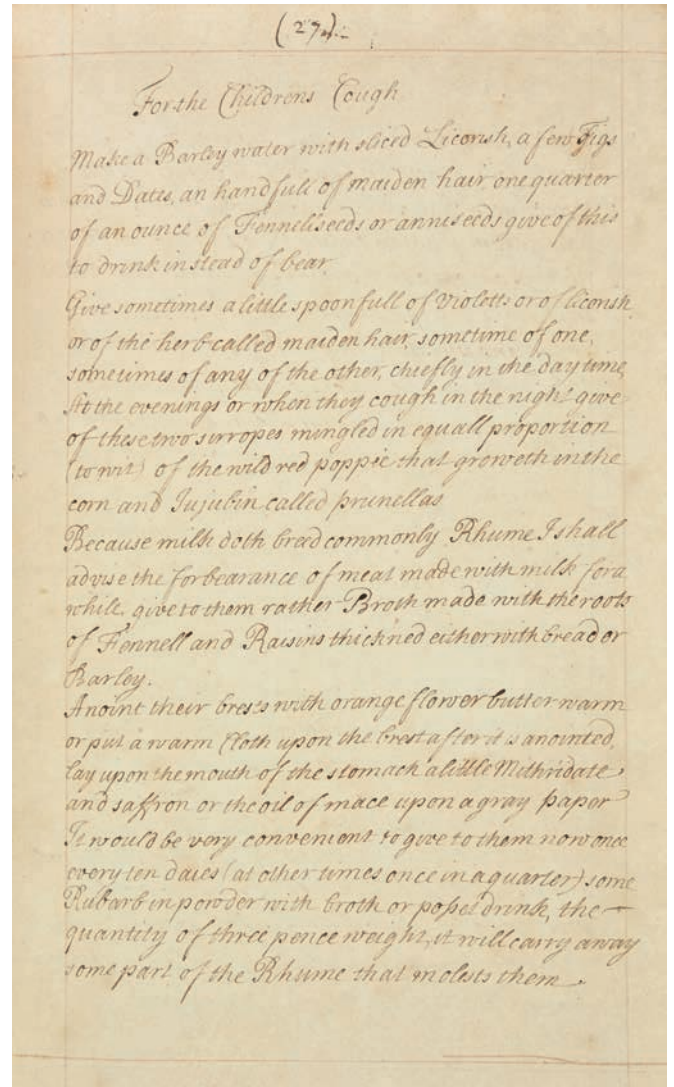 (27)
For the Childrens Cough
Make a Barley water with sliced Licorish, a few Figs
and Dates, an handfull of maiden hair one quarter
of an ounce of Fennellseeds or anniseeds give of this
to drink in stead of bear.
Give sometimes a little spoonfull of violetts or of licorish
or of the herb called maiden hair, sometime of one,
sometimes of any of the other, chiefly in the day time,
At the evenings or when they cough in the night give
of these two sirropes mingled in equall proportion
(to wit) of the wild red poppie that groweth in the
corn and Jujubin called prunellas
Because milk doth breed commonly Rhume I shall
advise the forbearance of meat made with milk for a
while, give to them rather Broth made with the roots
of Fennell and Raisins thickned either with bread or
Barley.
Anoint their brests with orange flower butter warm
or put a warm Cloth upon the brest after it is anointed,
lay upon the mouth of the stomack a little Mithridate
and saffron or the oil of mace upon a gray paper
It would be very convenient to give to them now once
every ten daies (at other times once in a quarter) some
Rubarb in powder with broth or posset drink, the
quantity of three pence weight, it will carry away
some part of the Rhume that molests them.